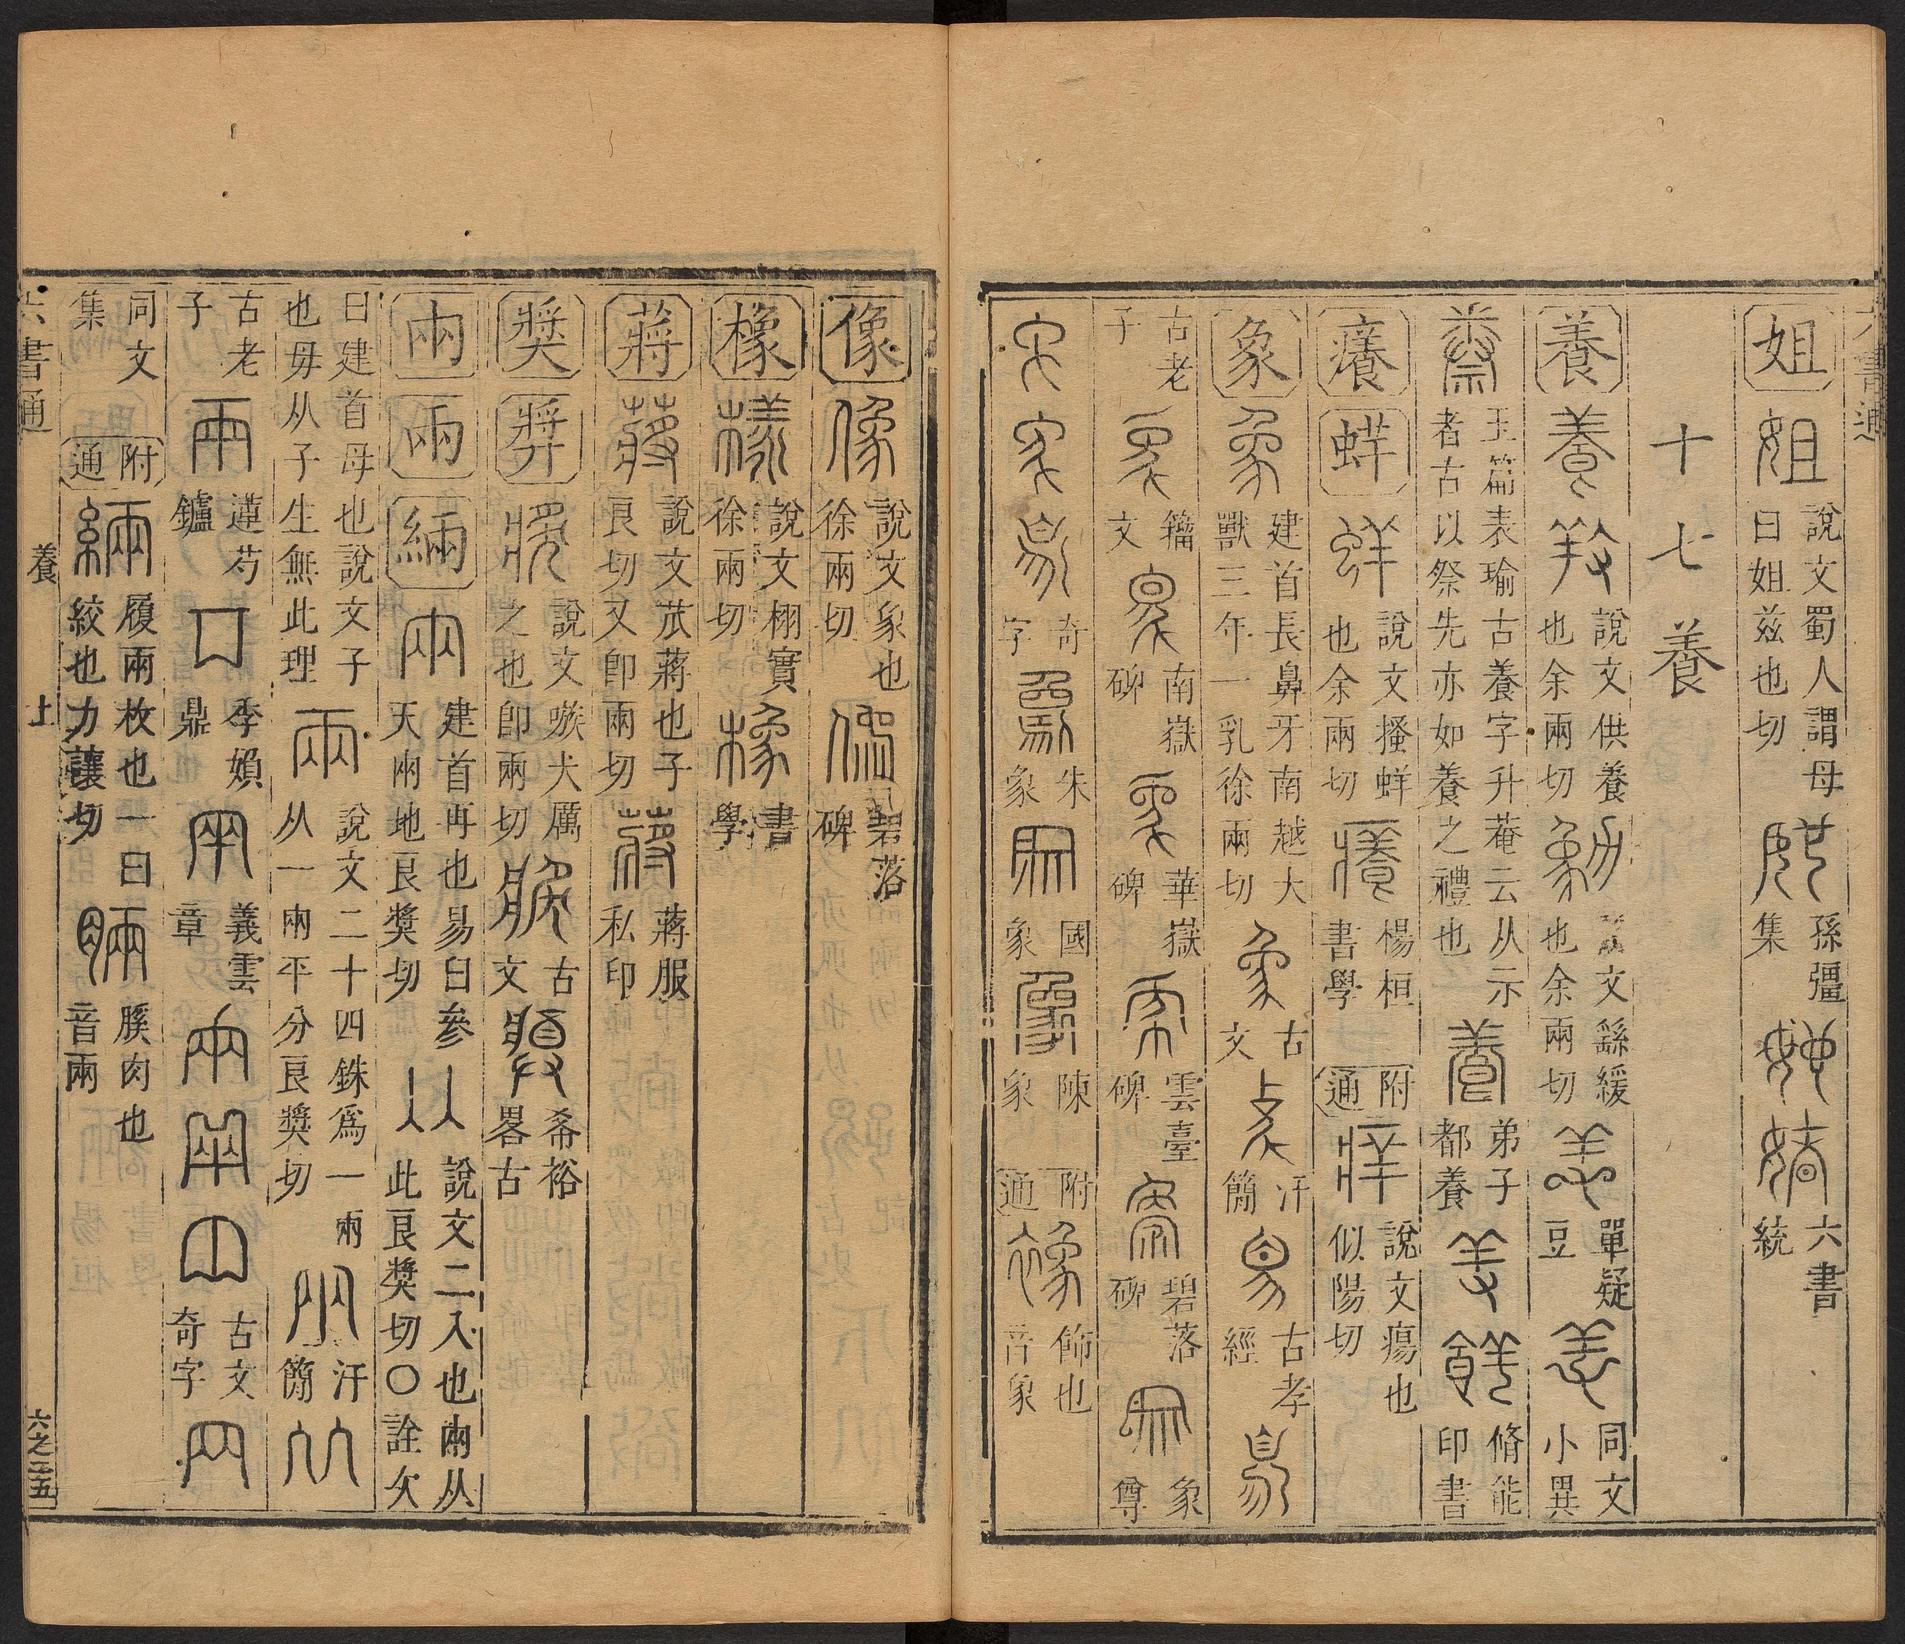 姐 說文蜀人謂母曰姐兹也切 孫彊集 六書統
十七養
養 說文供養也余兩切 文繇緩也余兩切 單疑豆 同文小異
玉篇表瑜古養字升菴云从示者古以祭先亦如養之禮也 弟子都養 脩能印書
癢 蛘 說文搔蛘也余兩切 楊桓書學 附通 說文瘍也似陽切
象 建首長鼻牙南越大獸三年一乳徐兩切 古文 汗簡 古孝經
古老子 籀文 南嶽碑 華嶽碑 雲臺碑 碧落碑 象尊
奇字 朱象 國象 陳象 附通 飾也音象
像 說文象也徐兩切 碧落碑
橡 說文栩實徐兩切 書學
蔣 說文苽蔣也子良切又卽兩切 蔣服私印
獎 奬 說文嗾犬厲之也卽兩切 古文 希裕畧古
兩 㒳 緉 建首再也易曰參天兩地良獎切 說文二入也兩从此良獎切〇詮次
曰建首母也說文子也毋从子生無此理 說文二十四銖爲一兩从一㒳平分良獎切 汗簡
古老子 蓮芍鑪 季娟鼎 義雲章 古文奇字
同文集 附通 履兩枚也一曰絞也力讓切 䐂肉也音兩
六書通 養 上 六之三五
六書通